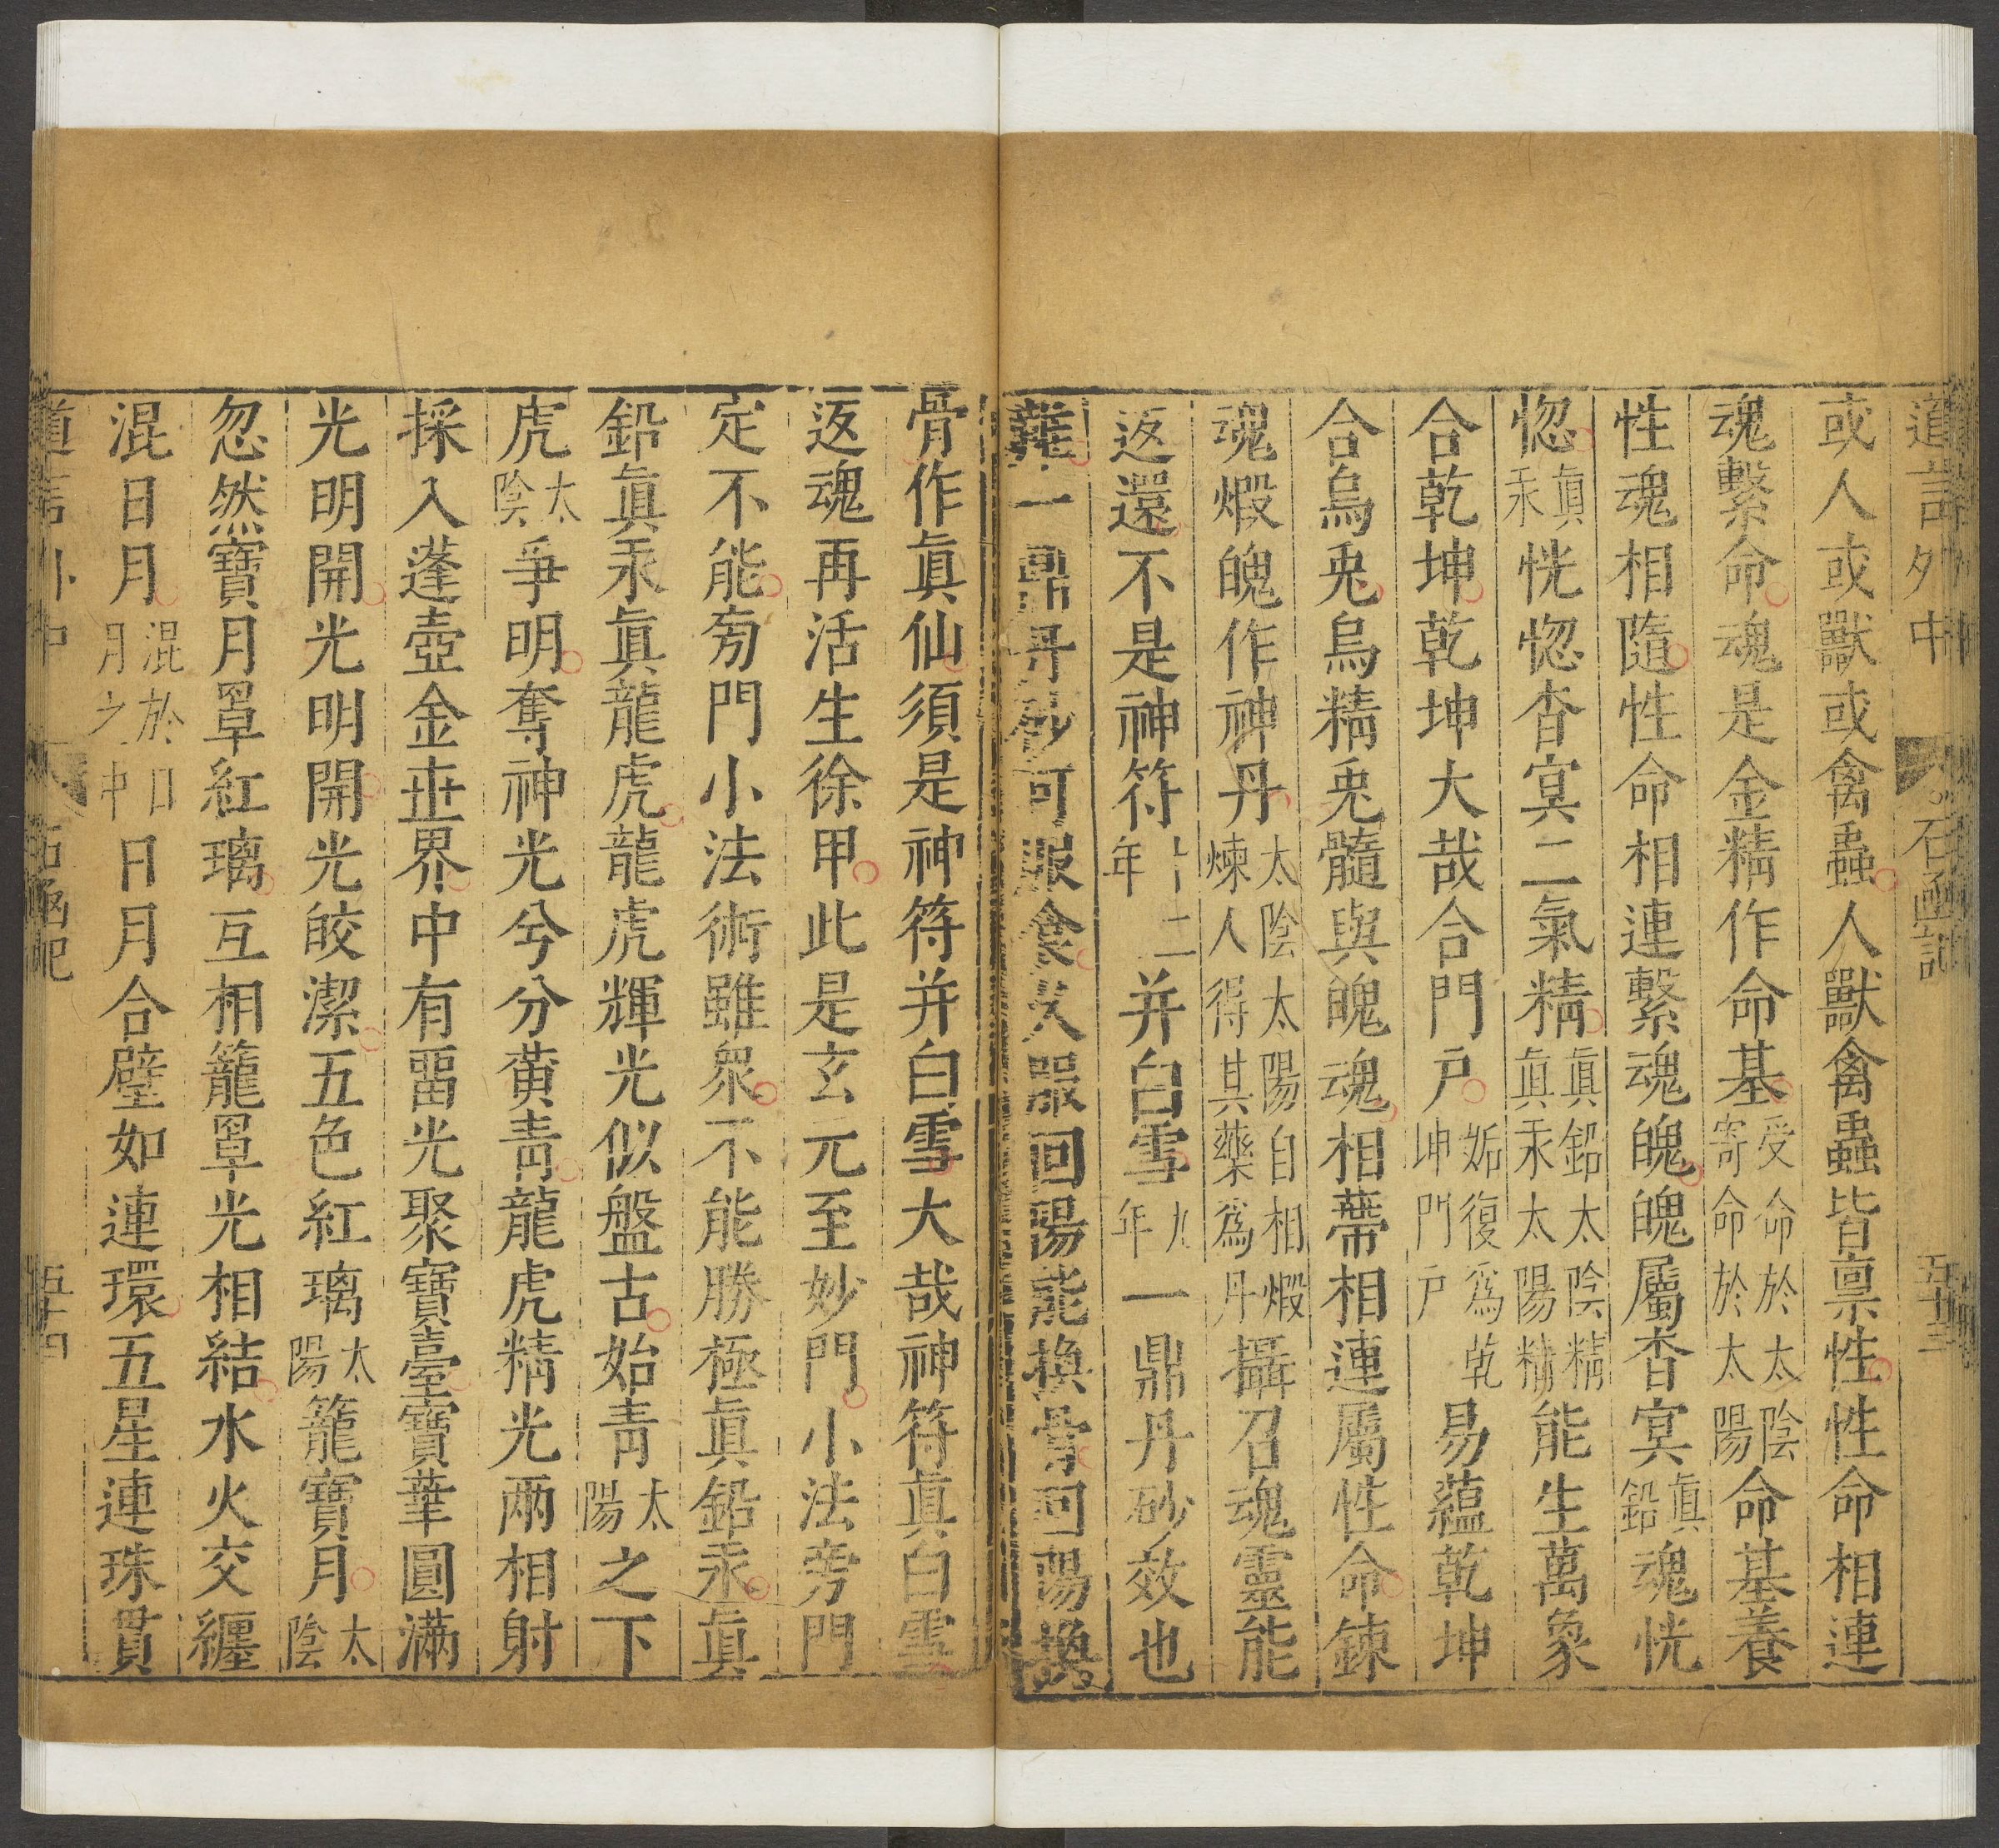 道言外中　石函記　五十三
或人或獸或禽蟲人獸禽蟲皆禀性性命相連
魂繫命魂是金精作命基受命於太陰寄命於太陽命基養
性魂相隨性命相連繫魂魄魄屬杳冥真鉛魂恍
惚真汞恍惚杳冥二氣精真鉛太陰精真汞太陽精能生萬象
合乾坤乾坤大哉合門戶姤復爲乾坤門戶易蘊乾坤
合烏兎烏精兎髓與魄魂相蒂相連屬性命鍊
魂煆魄作神丹太陰太陽自相煆煉人得其藥爲丹攝召魂靈能
返還不是神符十二年并白雪九年一鼎丹砂效也
難一鼎丹砂可服食火服回陽能換骨回陽換
骨作眞仙須是神符并白雪大哉神符眞白雪
返魂再活生徐甲此是玄元至妙門小法旁門
定不能旁門小法術雖衆不能勝極眞鉛汞眞
鉛眞汞眞龍虎龍虎輝光似盤古始青太陽之下
虎太陰爭明奪神光兮分黄青龍虎精光兩相射
採入蓬壺金世界中有畱光聚寶臺寶華圓滿
光明開光明開光皎潔五色紅璃太陽籠寶月太陰
忽然寶月罩紅璃互相籠罩光相結水火交纏
混日月混於日月之中日月合璧如連環五星連珠貫
道言外中　石函記　五十四